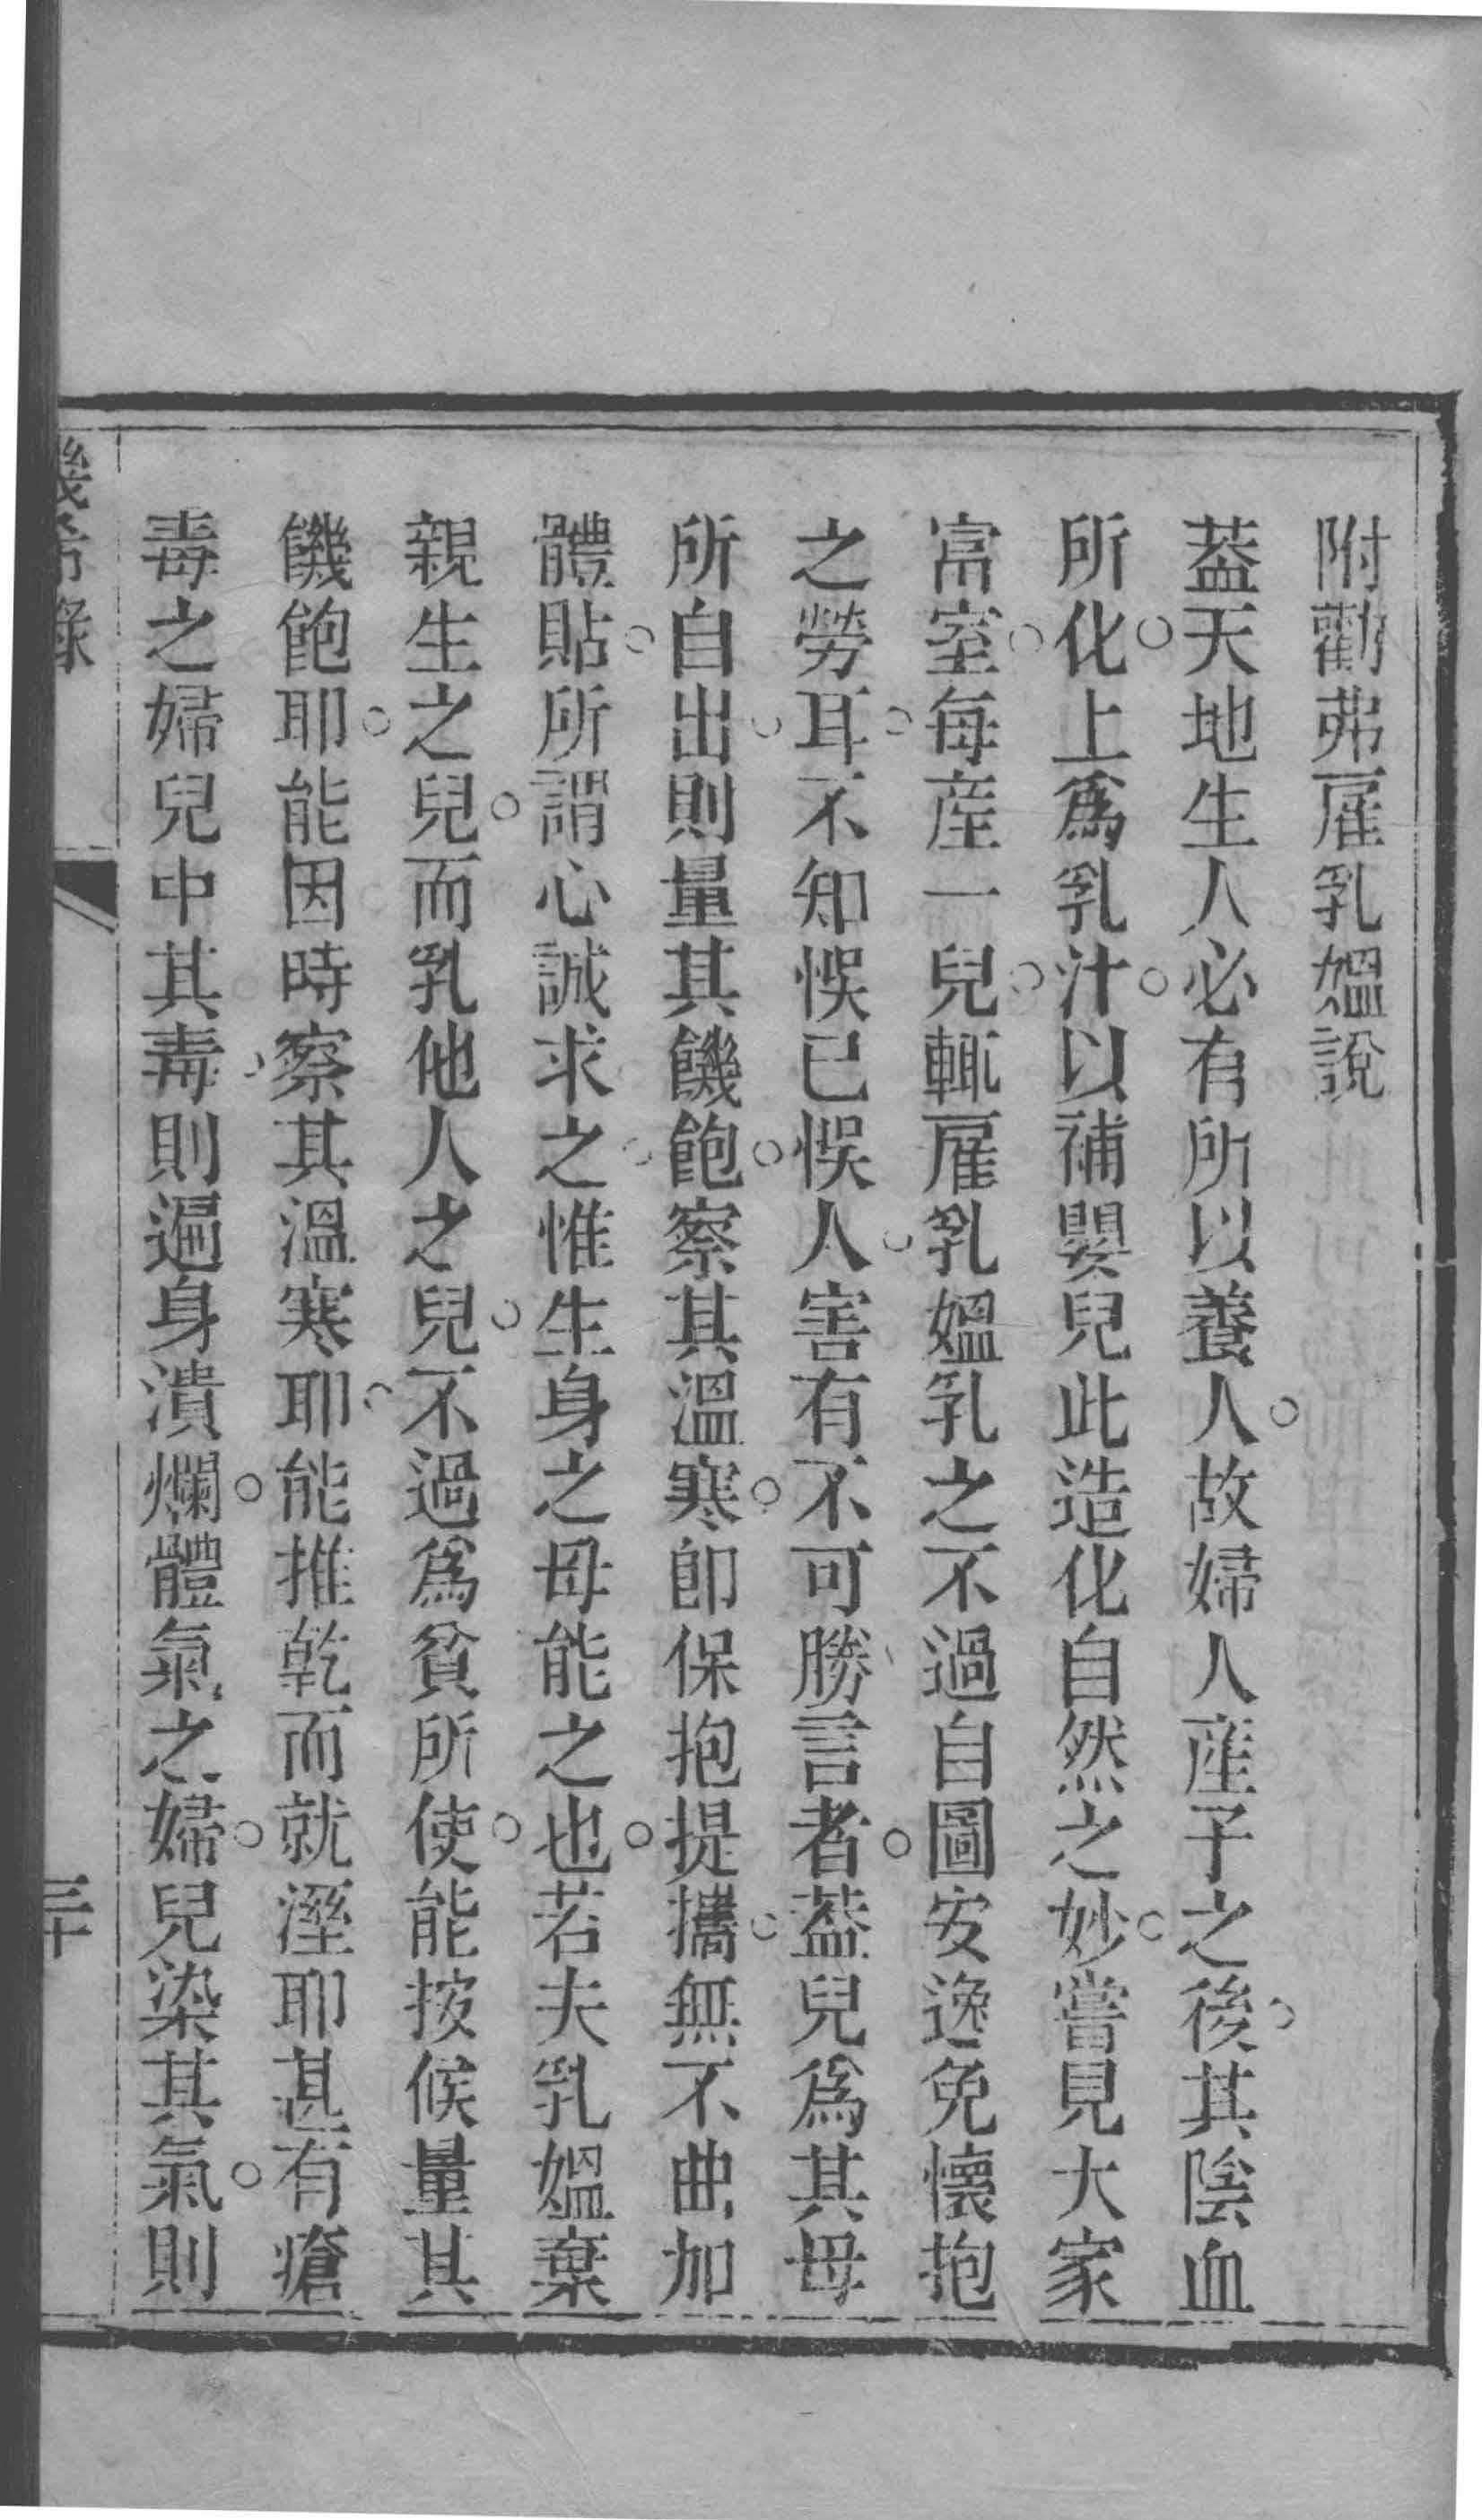 附勸弗雇乳媼說
葢天地生人必有所以養人故婦人産子之後其陰血
所化上爲乳汁以補嬰兒此造化自然之妙嘗見大家
富室每産一兒輒雇乳媼乳之不過自圖安逸免懷抱
之勞耳不知悞已悞人害有不可勝言者葢兒爲其母
所自出則量其饑飽察其溫寒卽保抱提攜無不曲加
體貼所謂心誠求之惟生身之母能之也若夫乳媼棄
親生之兒而乳他人之兒不過爲貧所使能按候量其
饑飽耶能因時察其溫寒耶能推乾而就溼耶甚有瘡
毒之婦兒中其毒則遍身潰爛體氣之婦兒染其氣則
幾希錄
三十